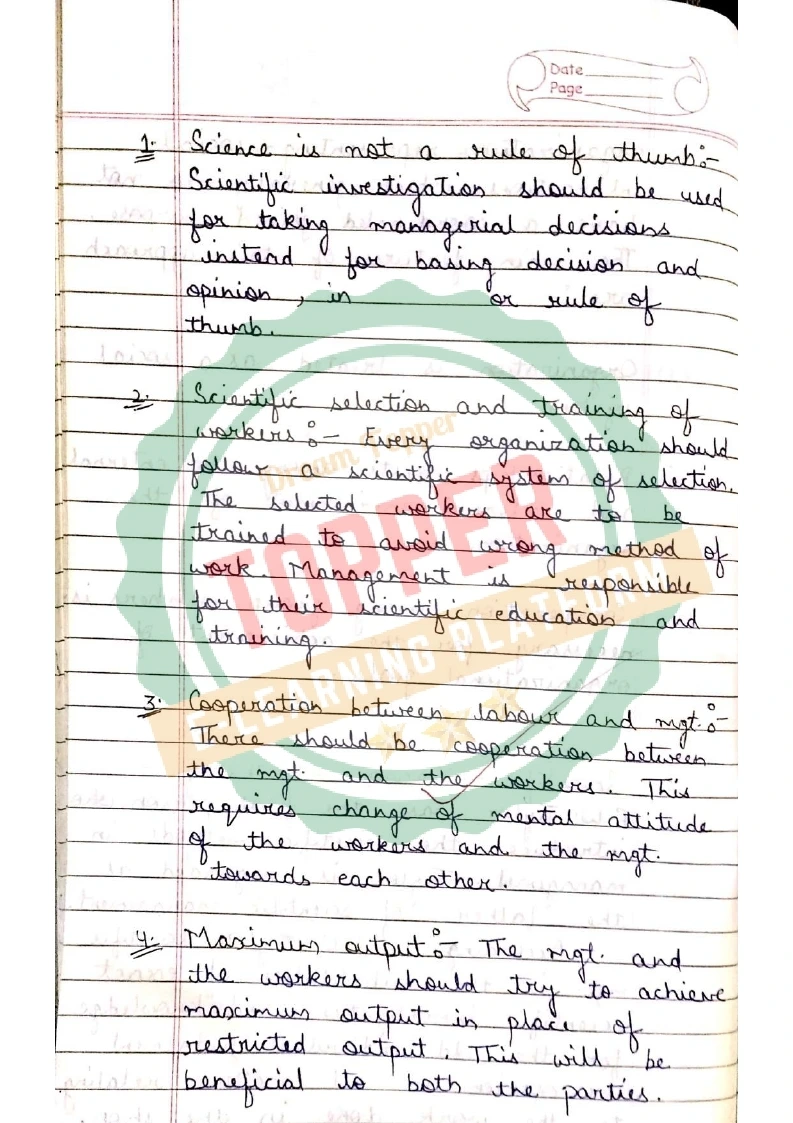 Date
Page
1. Science is not a rule of thumb :-
Scientific investigation should be used
for taking managerial decisions
instead for basing decision and
opinion , in or rule of
thumb.
2. Scientific selection and training of
workers :- Every organization should
follow a scientific system of selection.
The selected workers are to be
trained to avoid wrong method of
work. Management is responsible
for their scientific education and
training.
3. Cooperation between labour and mgt. :-
There should be cooperation between
the mgt. and the workers. This
requires change of mental attitude
of the workers and the mgt.
towards each other.
4. Maximum output :- The mgt. and
the workers should try to achieve
maximum output in place of
restricted output. This will be
beneficial to both the parties.
Dream Topper
TOPPER
E-LEARNING PLATFORM